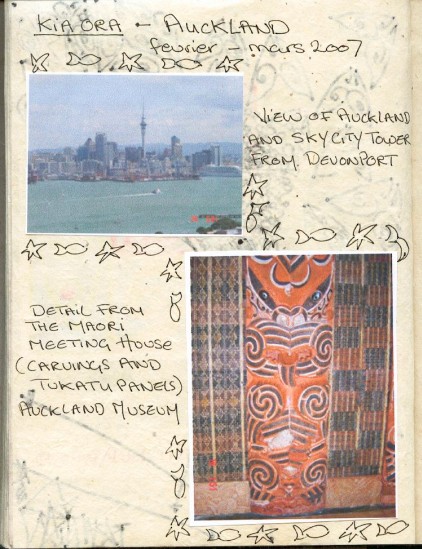 KIA ORA - AUCKLAND
fevrier - mars 2007
VIEW OF AUCKLAND
AND SKYCITY TOWER
FROM DEVONPORT
DETAIL FROM
THE MAORI
MEETING HOUSE
(CARVINGS AND
TUKATU PANELS)
AUCKLAND MUSEUM